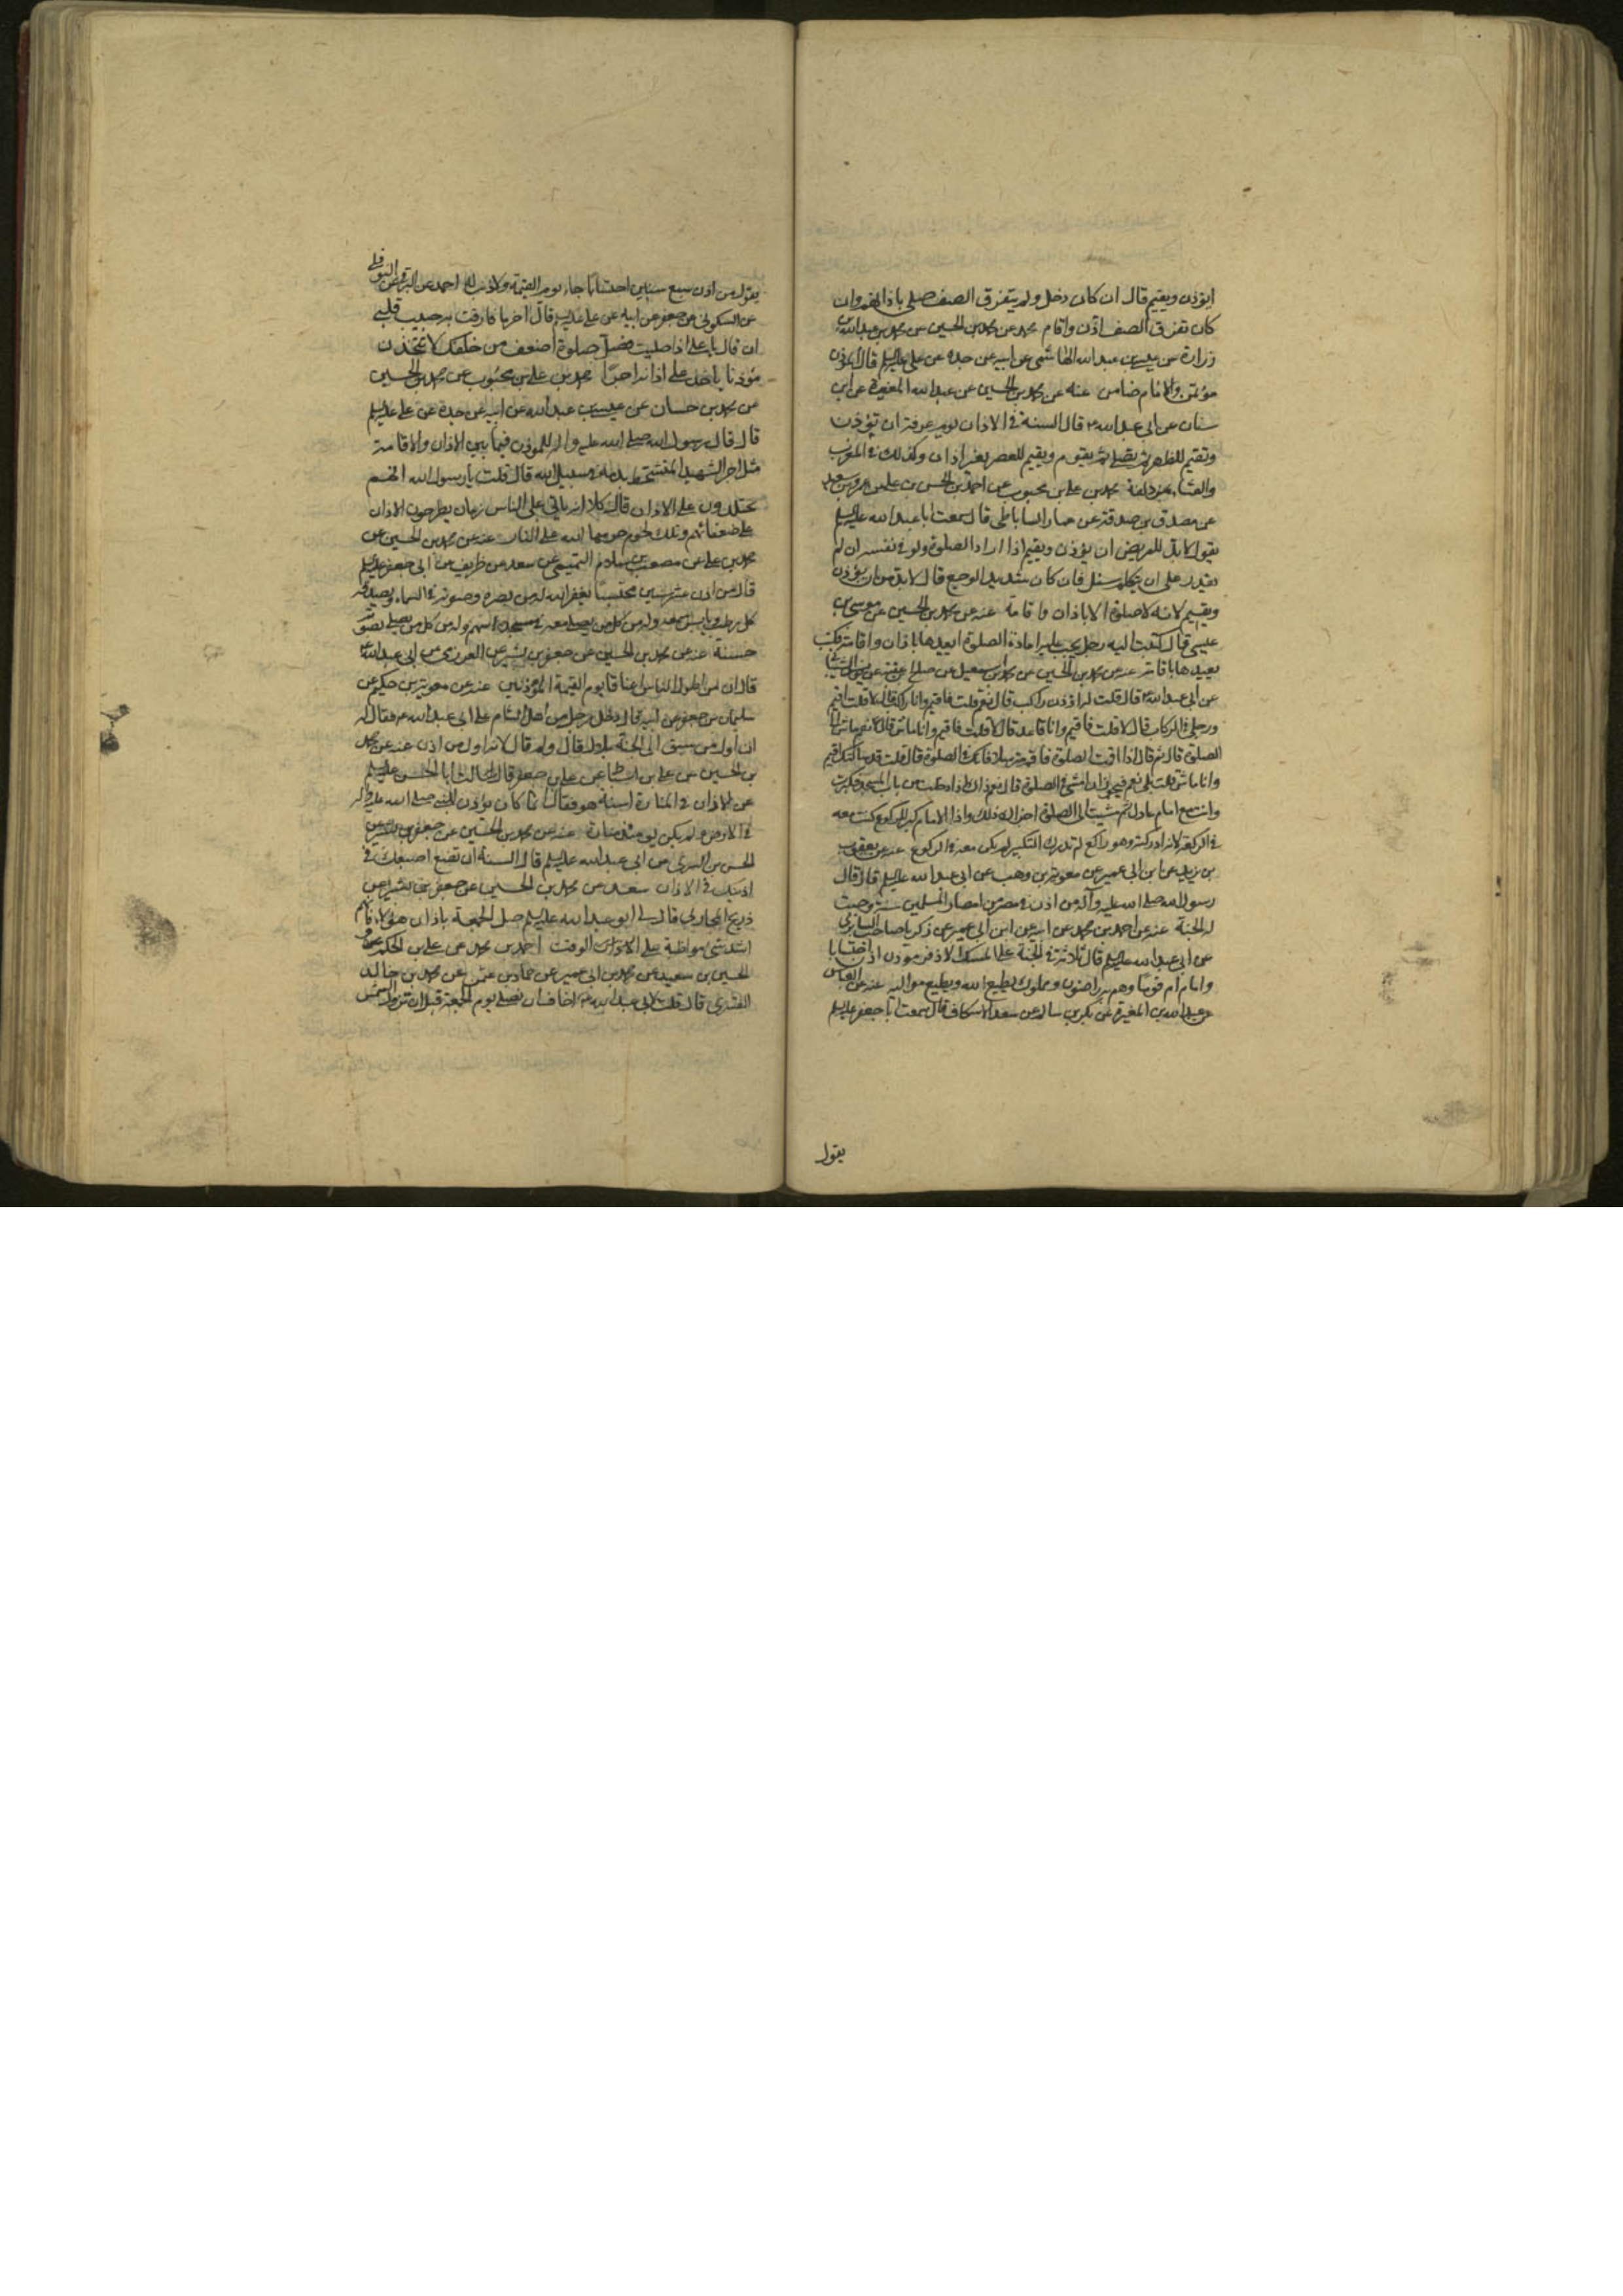 ايؤذن ويقيم قال ان كان دخل ولم يتفرق الصف صلى باذانهم وان
كان تفرق الصف اذن واقام محمد عن محمد بن الحسين عن محمد بن عبدالله بن
زرارة عن عيسى بن عبد الله الهاشمي عن ابيه عن جده عن علي عليه السلم قال المؤذن
مؤتمن والامام ضامن عنه عن محمد بن الحسين عن عبد الله المغيرة عن ابن
سنان عن ابي عبد الله ع قال السنة في الاذان يوم عرفة ان يؤذن
وتقيم للظهر ثم يصلي ثم يقوم ويقيم للعصر بغير اذان وكذلك في المغرب
والعشاء بمزدلفة محمد بن علي بن محبوب عن احمد بن الحسن بن علي عن عمرو بن سعيد
عن مصدق بن صدقة عن عمار الساباطي قال سمعت ابا عبد الله عليه السلم
يقول لابد للمريض ان يؤذن ويقيم اذا اراد الصلوة ولو في نفسه ان لم
يقدر على ان يتكلم سئل فان كان شديد الوجع قال لابد من ان يؤذن
ويقيم لانه لا صلوة الا باذان واقامة عنه عن محمد بن الحسين عن موسى بن
عيسى قال كتبت اليه رجل يجب عليه اعادة الصلوة ايعيدها باذان واقامة فكتب
يعيدها باقامة عنه عن محمد بن الحسين عن محمد بن اسمعيل عن صلح بن عقبة عن يونس الشيباني
عن ابي عبد الله ع قال قلت له اؤذن راكب قال نعم قلت فاقيم وانا راكب قال لا قلت اقيم
ورجلي في الركاب قال لا قلت فاقيم وانا قاعد قال لا قلت فاقيم وانا ماش قال نعم ماش الى
الصلوة قال ثم قال اذا اقمت الصلوة فاقم مترسلا فانك في الصلوة قال قلت قد سالتك اقيم
وانا ماش قلت لي نعم فيجوز ان امشي في الصلوة قال نعم اذا دخلت من باب المسجد فكبرت
وانت مع امام عادل ثم مشيت الى الصلوة اجزاك ذلك واذا الامام كبر للركوع كنت معه
في الركعة لانه ادركته وهو راكع لم تدرك التكبير لم يكن معه في الركوع عنه عن يعقوب
بن يزيد عن ابن ابي عمير عن معوية بن وهب عن ابي عبد الله عليه السلم قال قال
رسول الله صلى الله عليه وآله من اذن في مصر من امصار المسلمين سنة وجبت
له الجنة عنه عن احمد بن محمد عن ابيه عن ابن ابي عمير عن زكريا صاحب السابري
عن ابي عبد الله عليه السلم قال ثلاثة في الجنة على المسك الاذفر مؤذن اذن احتسابا
وامام ام قوما وهم به راضون ومملوك يطيع الله ويطيع مواليه عنه عن العباس
عن عبد الله بن المغيرة عن بكر بن سالم عن سعد الاسكاف قال سمعت ابا جعفر عليه السلم
يقول
يقول من اذن سبع سنين احتسابا جاء يوم القيمة ولا ذنب له احمد عن البرقي عن النوفلي
عن السكوني عن جعفر عن ابيه عن علي عليه السلم قال اخر ما فارقت به حبيب قلبي
ان قال يا علي اذا صليت فصل صلوة اضعف من خلفك لا تتخذن
مؤذنا ياخذ على اذانه اجرا محمد بن علي بن محبوب عن محمد بن الحسين
عن محمد بن حسان عن عيسى بن عبد الله عن ابيه عن جده عن علي عليه السلم
قال قال رسول الله صلى الله عليه واله للمؤذن فيما بين الاذان والاقامة
مثل اجر الشهيد المتشحط بدمه في سبيل الله قال قلت يا رسول الله انهم
يجتلدون على الاذان قال كلا انه ياتي على الناس زمان يطرحون الاذان
على ضعفائهم وتلك لحوم حرمها الله على النار عنه عن محمد بن الحسين عن
محمد بن علي عن مصعب بن سلام التميمي عن سعد بن طريف عن ابي جعفر عليه السلم
قال من اذن عشر سنين محتسبا يغفر الله له مد بصره وصوته في السماء ويصدقه
كل رطب ويابس سمعه وله من كل من يصلي معه في مسجده سهم وله من كل من يصلي بصوته
حسنة عنه عن محمد بن الحسين عن جعفر بن بشير عن العرزمي عن ابي عبد الله ع
قال ان من اطول الناس اعناقا يوم القيمة المؤذنين عنه عن معوية بن حكيم عن
سليمان بن جعفر عن ابيه قال دخل رجل من اهل الشام على ابي عبد الله ع فقال له
ان اول من سبق الى الجنة بلال قال ولم قال لانه اول من اذن عنه عن محمد
بن الحسين عن علي بن اسباط عن علي بن جعفر قال سالت ابا الحسن عليه السلم
عن الاذان في المنارة اسنة هو فقال انما كان يؤذن للنبي صلى الله عليه واله
في الارض ولم يكن يومئذ منارة عنه عن محمد بن الحسين عن جعفر بن بشير عن
الحسن بن السري عن ابي عبد الله عليه السلم قال السنة ان تضع اصبعك في
اذنيك في الاذان سعد عن محمد بن الحسين عن جعفر بن بشير عن
ذريح المحاربي قال لي ابو عبد الله عليه السلم صل الجمعة باذان هؤلاء فانهم
اشد شيء مواظبة على الوقت احمد بن محمد عن علي بن الحكم عن
الحسين بن سعيد عن محمد بن ابي عمير عن حماد بن عثمن عن محمد بن خالد
القسري قال قلت لابي عبد الله ع اخاف ان نصلي يوم الجمعة قبل ان تزول الشمس